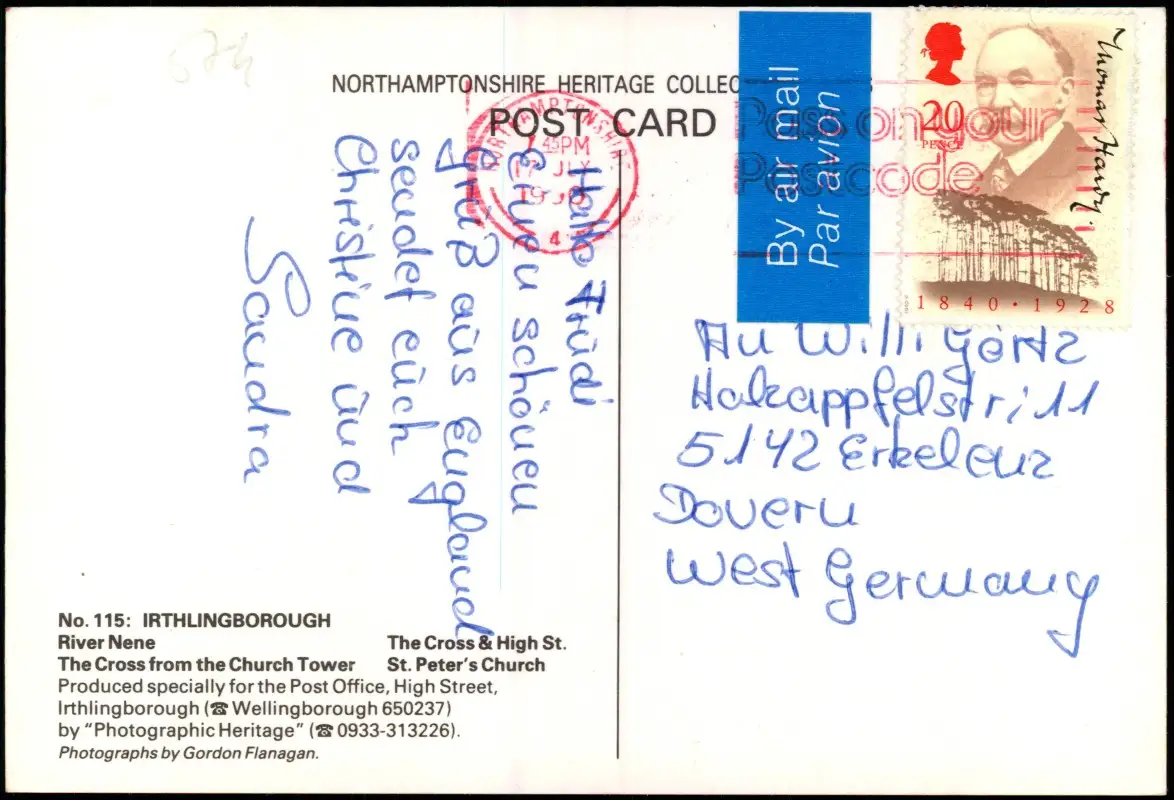 574
NORTHAMPTONSHIRE HERITAGE COLLEC
POST CARD
NORTHAMPTONSHIRE
45PM
17 JLY
1990
4
By air mail
Par avion
Pass on your
Postcode
20
PENCE
Thomas Hardy
1840 · 1928
Hallo Trüdi
Einen schönen
Grüß aüs England
sendet eüch
Christine ünd
Sandra
An Willi Görtz
Hakappfelstr; 11
5142 Erkelenz
Dovern
West Germany
No. 115: IRTHLINGBOROUGH
River Nene The Cross & High St.
The Cross from the Church Tower St. Peter's Church
Produced specially for the Post Office, High Street,
Irthlingborough (☎ Wellingborough 650237)
by "Photographic Heritage" (☎ 0933-313226).
Photographs by Gordon Flanagan.